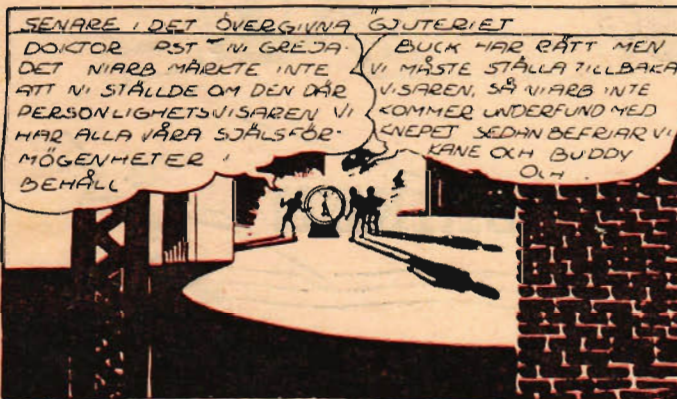 SENARE I DET ÖVERGIVNA GJUTERIET
DOKTOR PST NI GREJA-
DET NIARB MÄRKTE INTE
ATT NI STÄLLDE OM DEN DÄR
PERSONLIGHETSVISAREN VI
HAR ALLA VÅRA SJÄLSFÖR-
MÖGENHETER I
BEHÅLL
BUCK HAR RÄTT MEN
VI MÅSTE STÄLLA TILLBAKA
VISAREN, SÅ NIARB INTE
KOMMER UNDERFUND MED
KNEPET SEDAN BEFRIAR VI
KANE OCH BUDDY
OCH